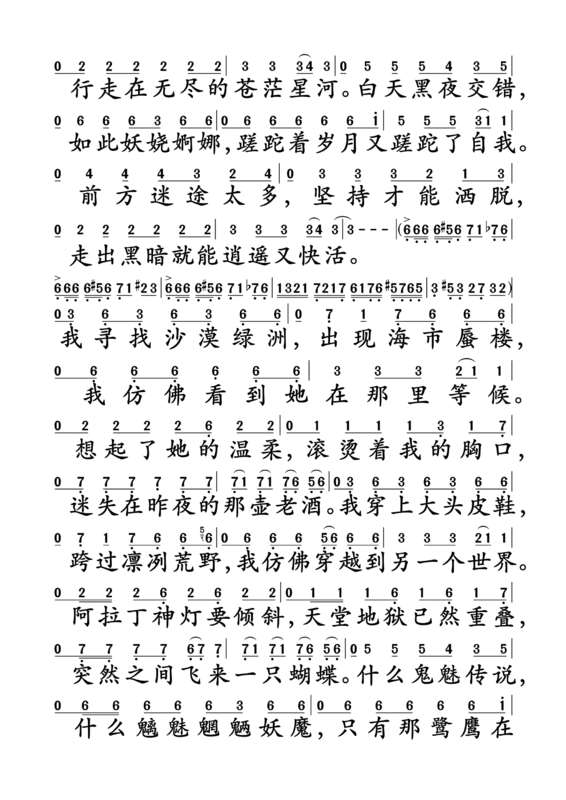 0 2 2 2 2 2 2 | 3 3 34 3 | 0 5 5 5 4 3 5 |
行走在无尽的苍茫星河。白天黑夜交错,
0 6 6 6 3 6 | 0 6 6 6 6 6 i | 5 5 5 31 1 |
如此妖娆婀娜,蹉跎着岁月又蹉跎了自我。
0 4 4 4 4 2 4 | 0 3 3 3 2 1 3 |
前方迷途太多,坚持才能洒脱,
0 2 2 2 2 2 2 | 3 3 3 34 3 | 3 - - - | (666 6#56 71 b76 |
走出黑暗就能逍遥又快活。
666 6#56 71 #23 | 666 6#56 71 b76 | 1321 7217 6176 #5765 | 3 #53 27 32) |
0 3 6 3 6 3 6 | 0 7 1 7 6 6 6 |
我寻找沙漠绿洲,出现海市蜃楼,
0 6 6 6 6 6 6 | 3 3 3 21 1 |
我仿佛看到她在那里等候。
0 2 2 2 2 6 2 | 0 1 1 1 1 3 1 7 |
想起了她的温柔,滚烫着我的胸口,
0 7 7 7 7 7 7 | 71 71 76 56 | 0 3 6 3 6 3 6 |
迷失在昨夜的那壶老酒。我穿上大头皮鞋,
0 7 1 7 6 6 56 | 0 6 6 6 6 56 6 | 3 3 3 21 1 |
跨过凛冽荒野,我仿佛穿越到另一个世界。
0 2 2 6 2 6 2 | 0 1 1 1 6 1 6 1 7 |
阿拉丁神灯要倾斜,天堂地狱已然重叠,
0 7 7 7 7 67 7 | 71 71 76 56 | 0 5 5 5 4 3 5 |
突然之间飞来一只蝴蝶。什么鬼魅传说,
0 6 6 6 6 3 6 6 | 0 6 6 6 6 6 i |
什么魑魅魍魉妖魔,只有那鹭鹰在